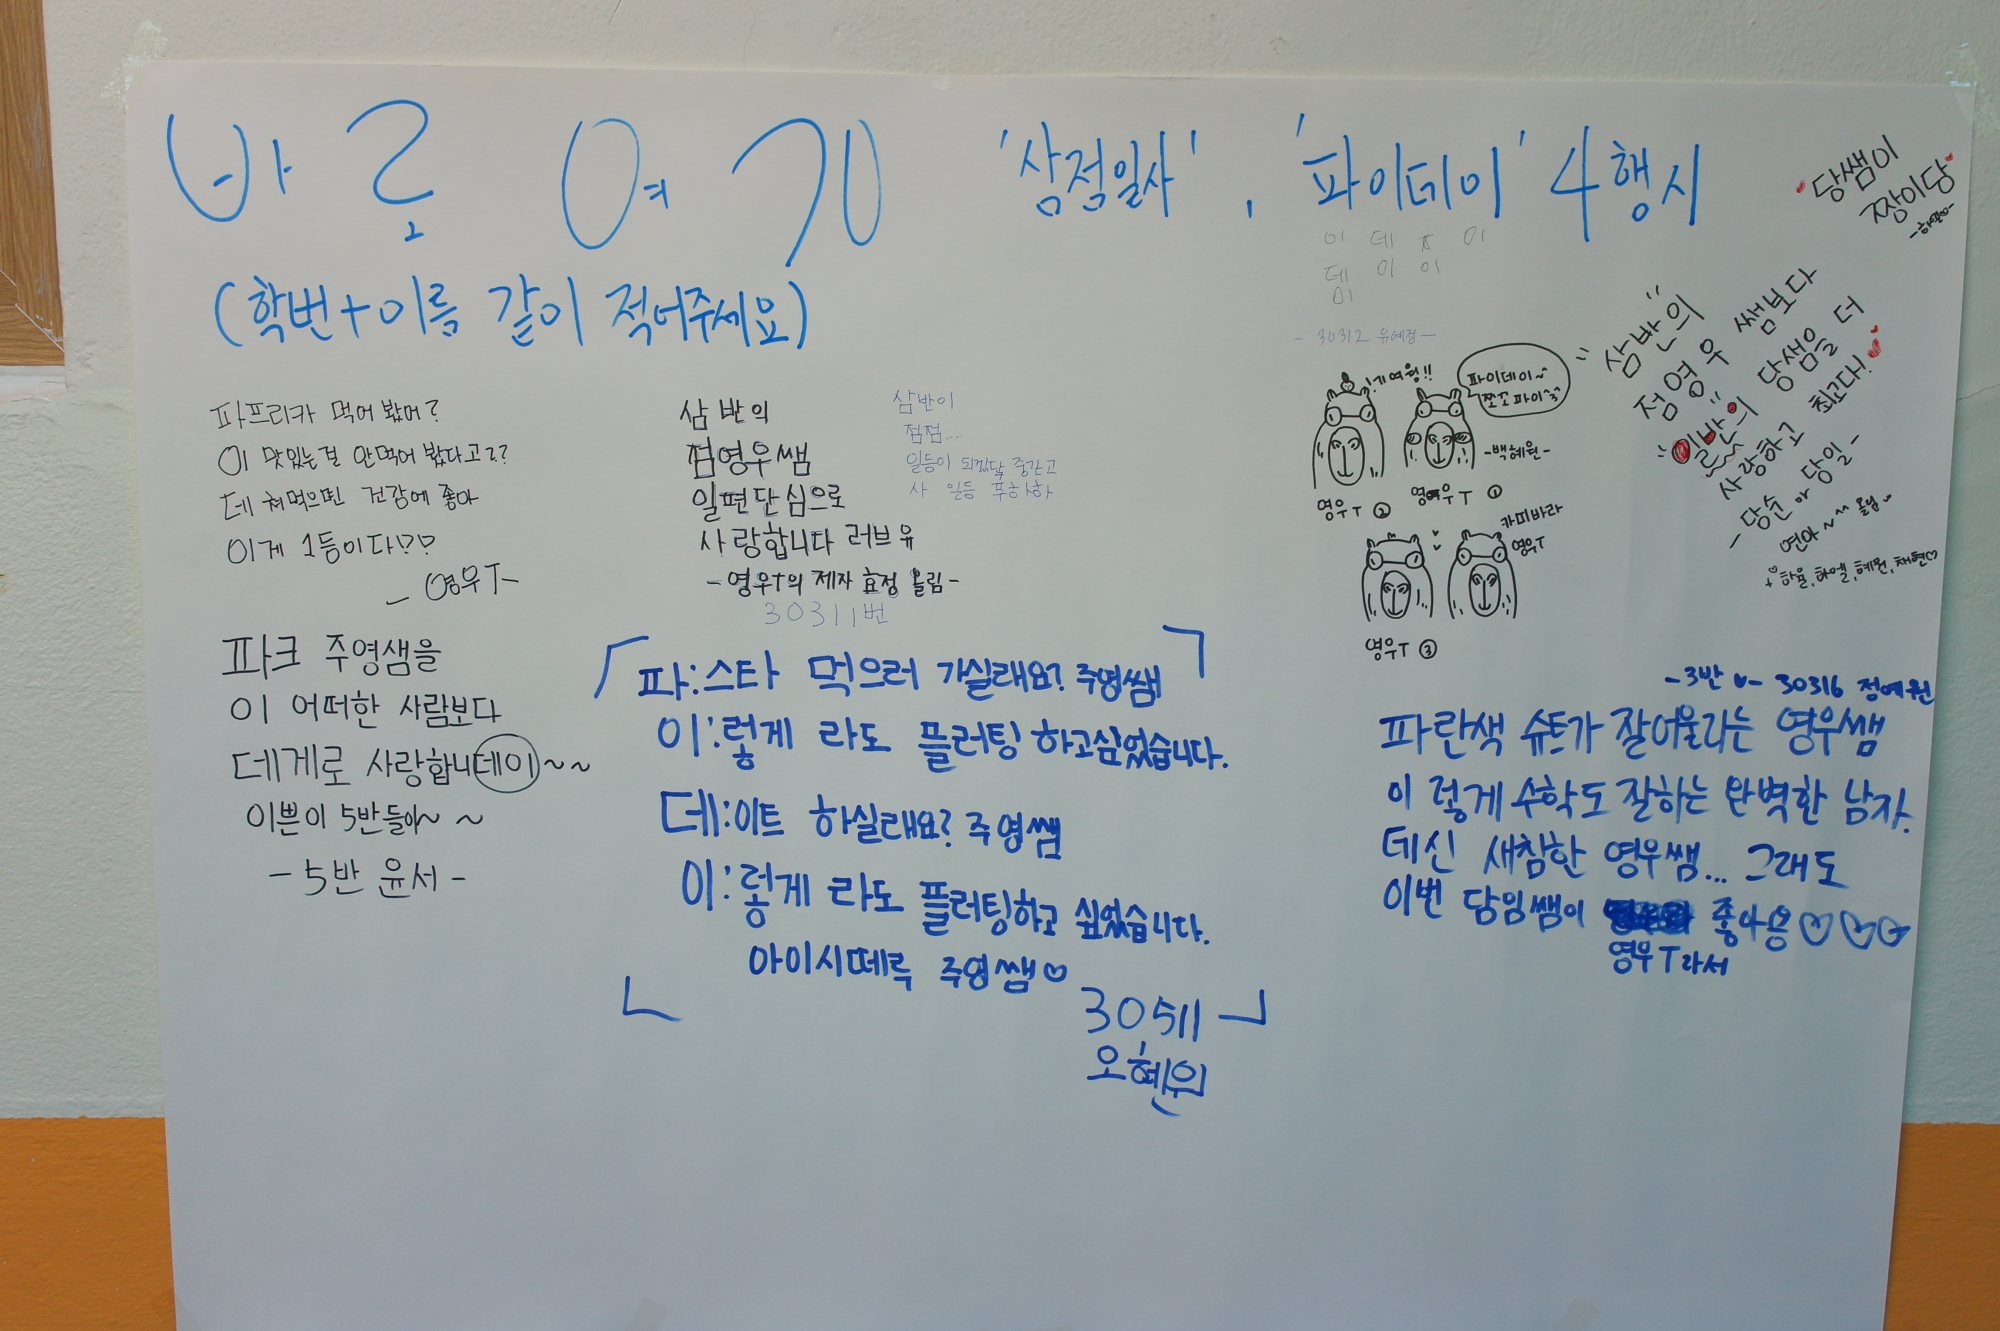 바로 여기 '삼점일사', '파이데이' 4행시
(학번+이름 같이 적어주세요)
파프리카 먹어 봤어?
이 맛있는걸 안먹어 봤다고??
데쳐먹으면 건강에 좋아
이게 1등이다!?
- 영우T-
파크 주영샘을
이 어떠한 사람보다
데게로 사랑합니데이~~
이쁜이 5반들아~ ~
- 5반 윤서 -
삼 반의
점영우쌤
일편단심으로
사랑합니다 러브유
- 영우T의 제자 효정 올림 -
30311번
삼반이
점점....
일등이 되겠닭 중간고
사 일등 푸하하하
「파:스타 먹으러 가실래요? 주영쌤
이:렇게 라도 플러팅 하고싶었습니다.
데:이트 하실래요? 주영쌤
이:렇게 라도 플러팅하고 싶었습니다.
아이시떼루 주영쌤♡
30511
오혜원
이 데 ㅈ 이
데 이 이
이
- 30312 유예정 -
기여웡!!
파이데이~
쪼꼬파이^3^
-백혜원-
영우T ②
영우T ①
카피바라
영우T
영우T ③
당쌤이
짱이당
-하엘-
삼반의
점영우 쌤보다
일반의 당샘을 더
사랑하고 최고다!
- 당순이 당일 -
연아~^^ 올림
+ 하율, 하엘, 혜원, 채현♡
-3반 ♥- 30316 정예원
파란색 슈트가 잘어울리는 영우쌤
이렇게 수학도 잘하는 완벽한 남자.
데신 새침한 영우쌤... 그래도
이번 담임쌤이 좋아용♡♡♡
영우T라서